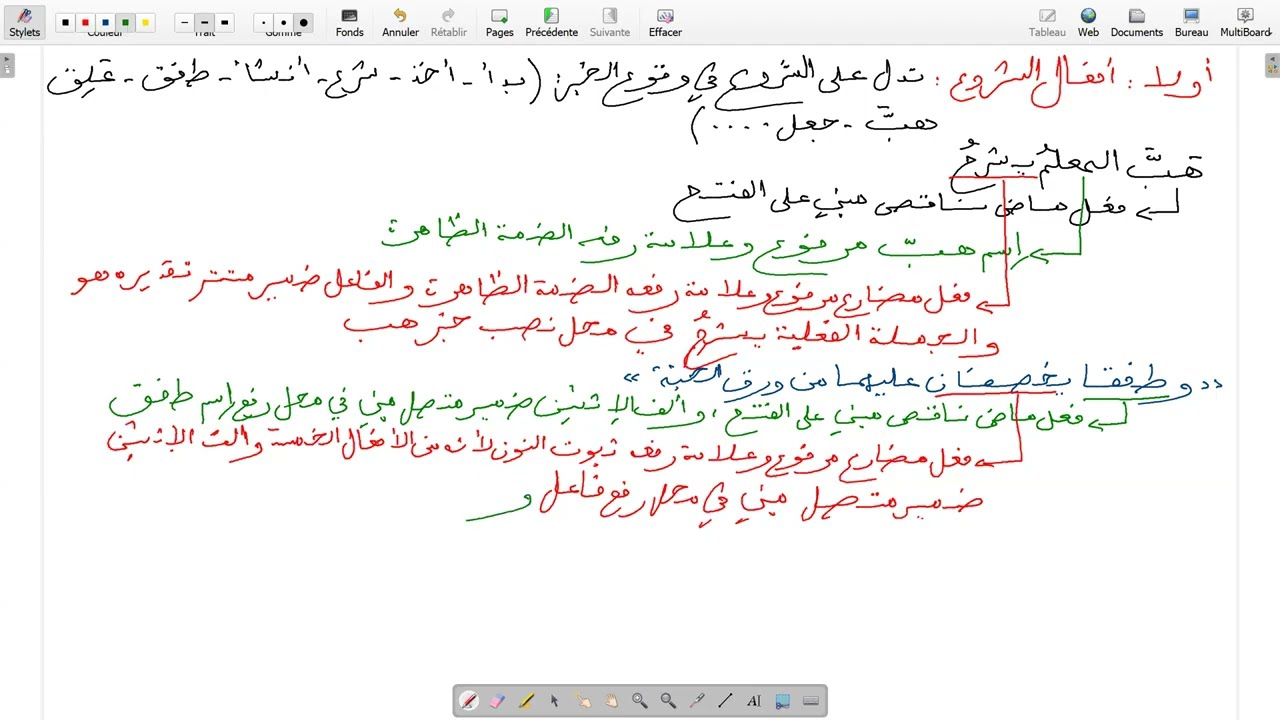 Stylets Couleur Trait Gomme Fonds Annuler Rétablir Pages Précédente Suivante Effacer Tableau Web Documents Bureau MultiBoard
أولا : أفعال الشروع : تدل على الشروع في وقوع الخبر : (بدأ - أخذ - شرع - أنشأ - طفق - علق
هبّ - جعل ....)
هَبَّ المعلمُ يشرحُ
فعل ماض ناقص مبني على الفتح
اسم هبّ مرفوع وعلامة رفعه الضمة الظاهرة
فعل مضارع مرفوع وعلامة رفعه الضمة الظاهرة والفاعل ضمير مستتر تقديره هو
والجملة الفعلية يشرحُ في محل نصب خبر هب
<< وطفقا يخصفان عليهما من ورق الجنة >>
فعل ماض ناقص مبني على الفتح ، وألف الاثنين ضمير متصل مبني في محل رفع اسم طفق
فعل مضارع مرفوع وعلامة رفعه ثبوت النون لأنه من الأفعال الخمسة وألف الاثنين
ضمير متصل مبني في محل رفع فاعل و
AI